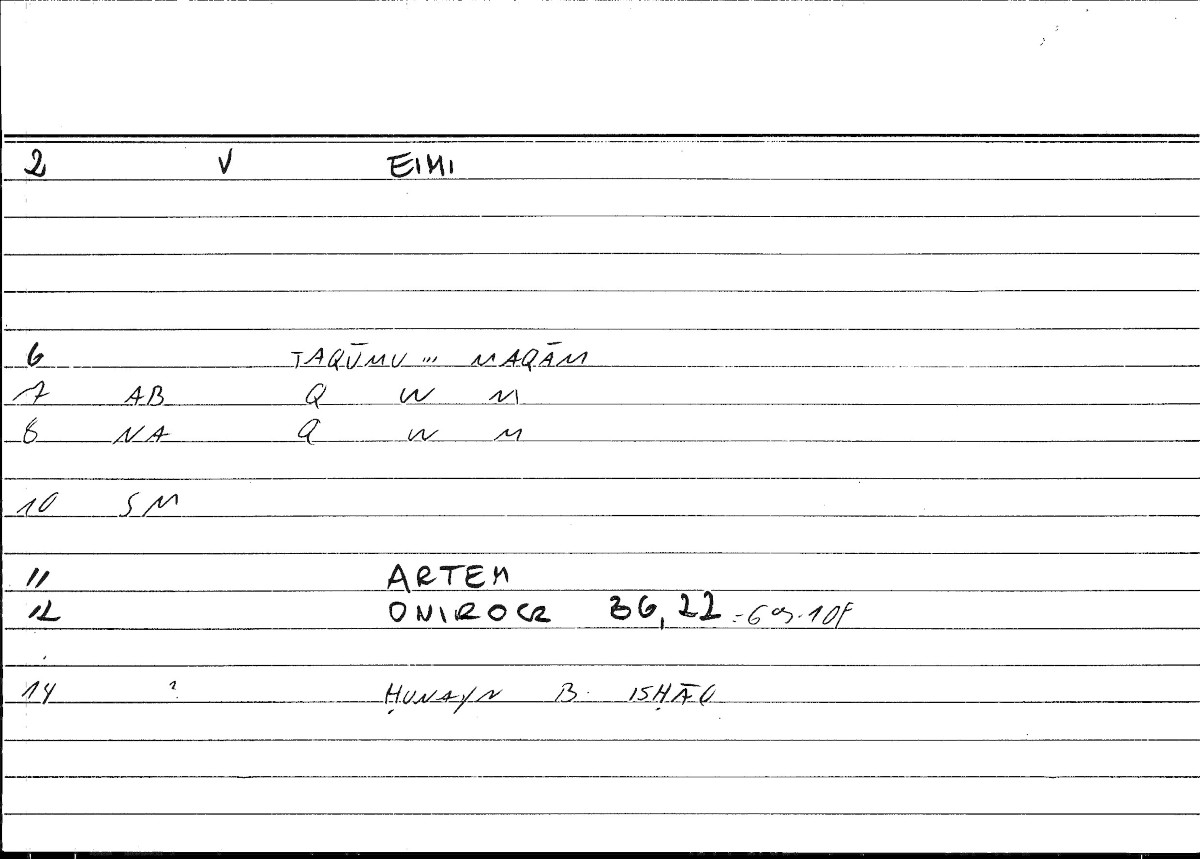 2 V EIMI
6 TAQŪMU ... MAQĀM
7 AB Q W M
8 NA Q W M
10 SM
11 ARTEM
12 ONIROCR 36,22
14 ? ḤUNAYN B. ISḤĀQ